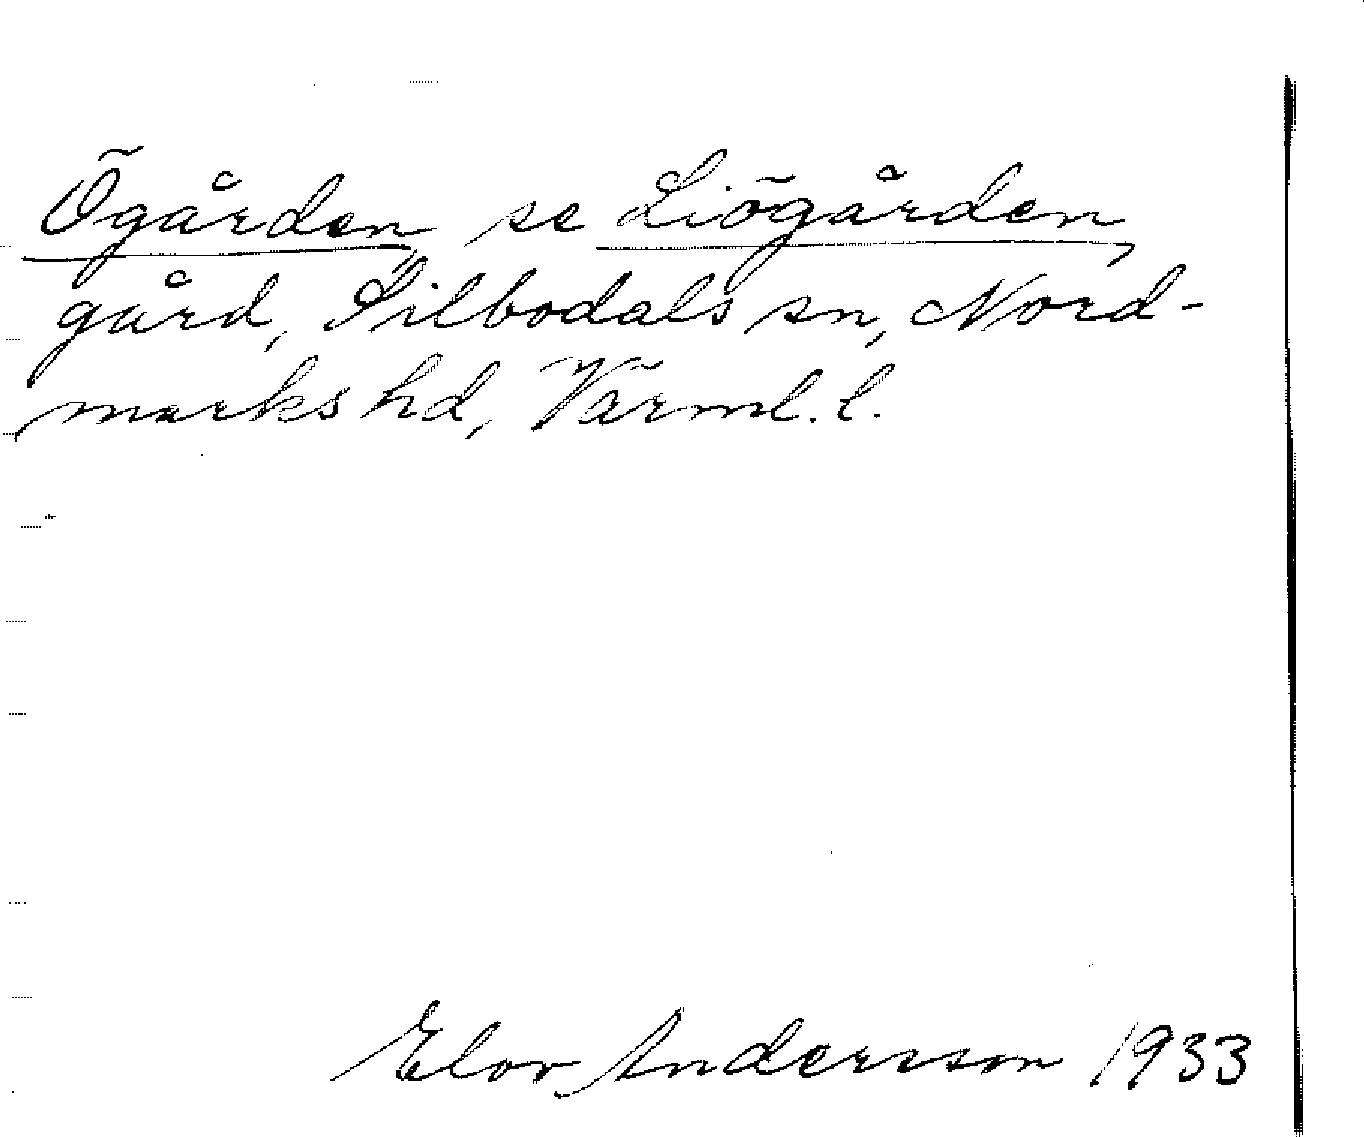 Ögården, se Liögården,
gård, Silbodals sn, Nord-
marks hd, Värml. l.
Elov Andersson 1933